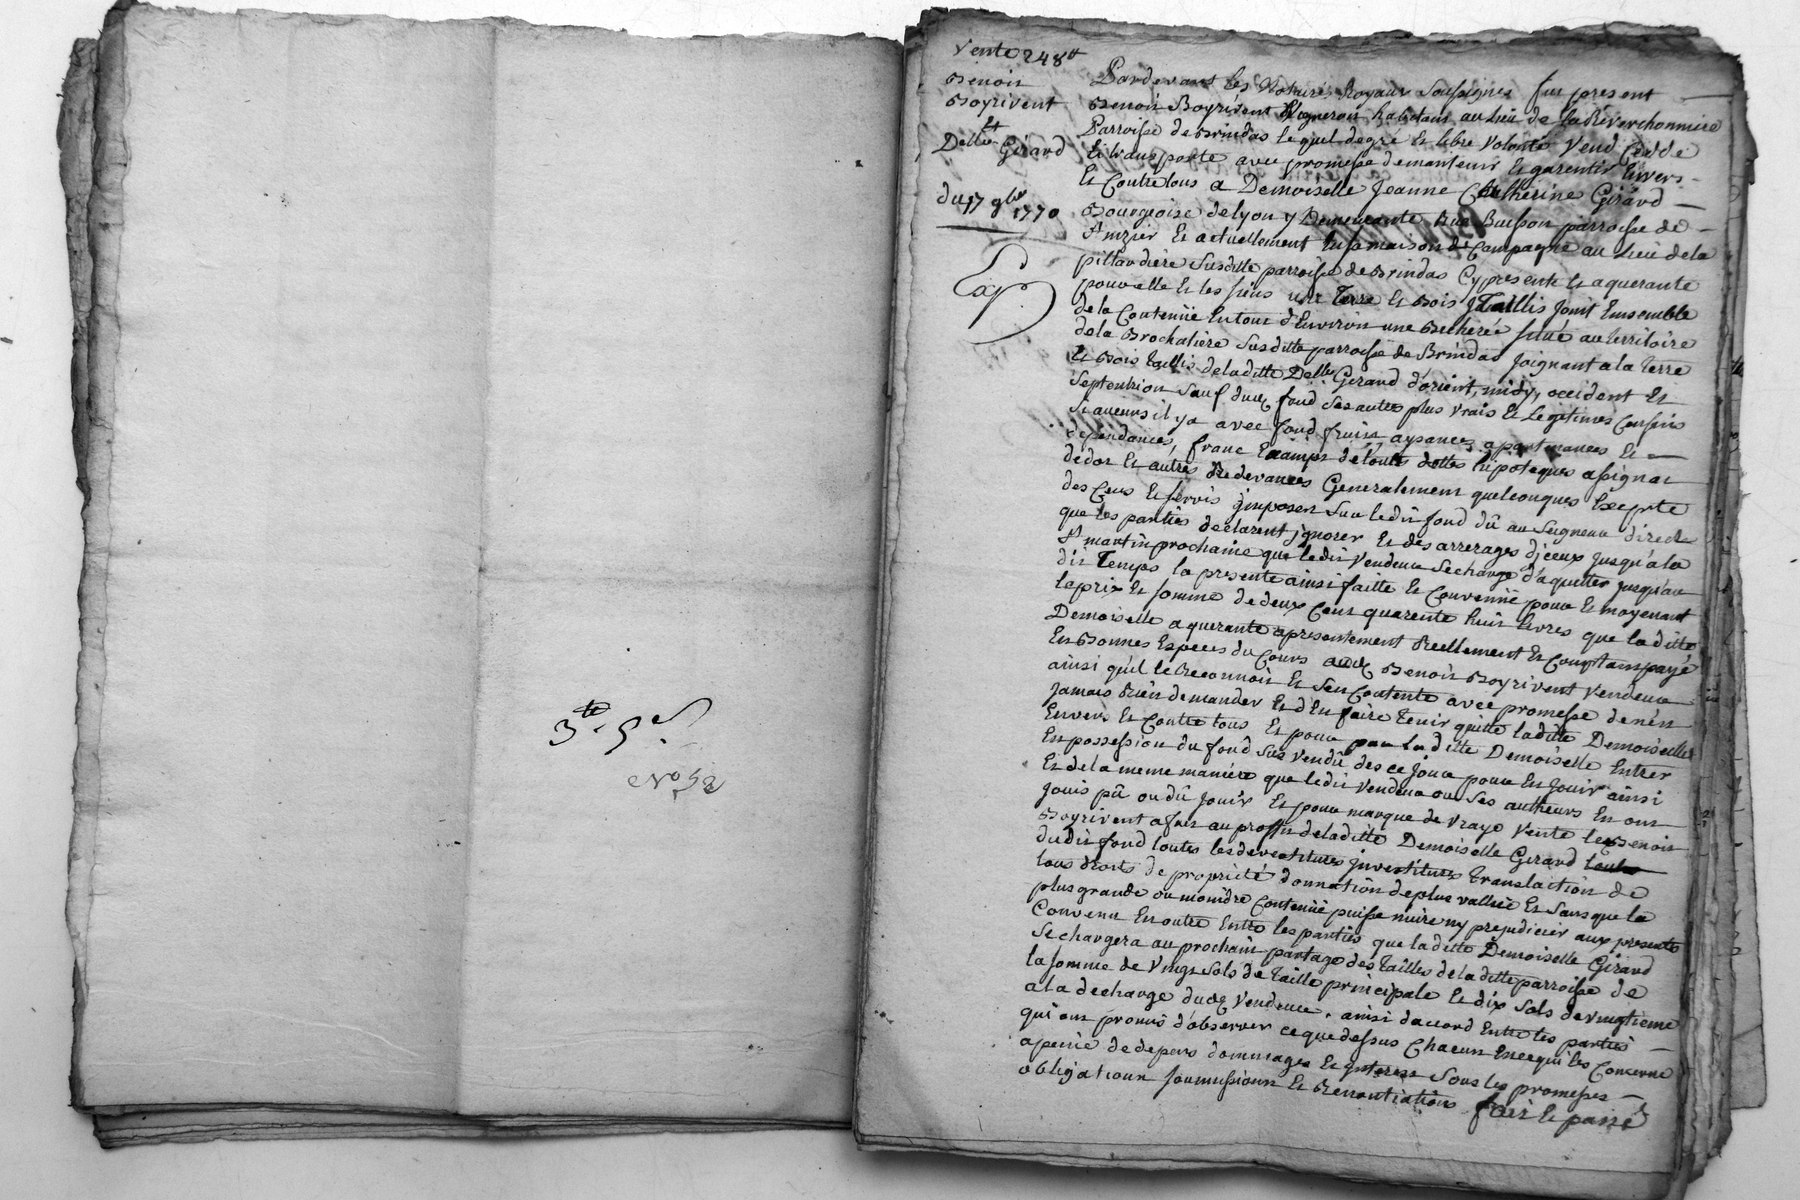 3te. 5e.
No 52
Vente 248tt
Benoit
Boyrivent
Et
Delle Girard
du 17 9bre 1770
Exp
Pardevant les Notaires Royaux Soussignés fut present
Benoit Boyrivent Vigneron habitant au Lieu de la Reverchonniere
Parroisse de Brindas lequel de gré et libre Volonté Vend Cedde
Et transporte avec promesse de mantenir Et garentir Envers
Et Contre tous a Demoiselle Jeanne Catherine Girard
Bourgeoise de lyon y Demeurante Rue Buisson parroisse de
St Nizier Et actuellement En sa maison de Campagne au Lieu de la
pillardiere Susditte parroisse de Brindas Cy presente Et aquerante
pour elle Et les siens une Terre Et Bois Taillis Joint Ensemble
de la Contenüe En tout d'Environ une Bicherée Situé au territoire
de la Brochaliere Susditte parroisse de Brindas Joignant a la terre
Et Bois taillis de laditte Delle Girard d'orient, midy, occident Et
Septentrion Sauf dudt fond Ses autres plus Vrais Et Legitimes Confins
Si aucuns il y a avec fond fruits aysances apartenances Et
dependances, franc Exaimpt de toutes dettes hipoteques assignat
de dot Et autres Redevances Generalement quelconques Exepté
des Cens Et servis jmposés Sur ledit fond dû au Seigneur direct
que les parties declarent jgnorer Et des arrerages djceux jusqu'a la
St martin prochaine que ledit Vendeur Se charge d'aquitter jusqu'au
dit Temps la presente ainsi faitte Et Convenüe pour Et moyenant
le prix Et somme de deux Cent quarente huit livres que laditte
Demoiselle aquerante a presentement Reellement Et Comptant payé
En Bonnes Especes du Cours audt Benoit Boyrivent Vendeur
ainsi qu'il le Reconnoit Et S'en Contente avec promesse de n'en
jamais Rien demander Et d'En faire tenir quitte laditte Demoiselle
Envers Et Contre tous Et pour par laditte Demoiselle Entrer
En possession du fond Sus Vendû des ce jour pour En Jouir ainsi
Et de la meme maniere que ledit Vendeur ou Ses autheurs En ont
Jouis pû ou dû Jouir Et pour marque de Vraye Vente led Benoit
Boyrivent a fait au proffit de laditte Demoiselle Girard
dudit fond toutes les devestitures jnvestitures translation de
tous droits de propriété donnation de plus vallüe Et Sans que la
plus grande ou moindre Contenüe puisse nuire ny prejudicier aux presentes
Convenu En outre Entre les parties que laditte Demoiselle Girard
Se chargera au prochain partage des tailles de laditte parroisse de
la somme de Vingt Sols de taille principale Et dix Sols de vingtieme
a la decharge dudt Vendeur. ainsi d'accord Entre les parties
qui ont promis d'observer ce que dessus Chacun En ce qui les Concerne
a peine de depens dommages Et jnterets Sous les promesses
obligations soumissions Et Renontiations fait Et passé